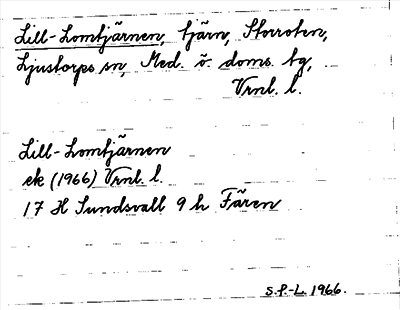 Lill-Lomtjärnen, tjärn, Storroten,
Ljustorps sn, Med. ö. doms. tg,
Vrnl. l.
Lill-Lomtjärnen
ek (1966) Vrnl. l.
17 H Sundsvall 9 h Fären
S.P-L. 1966.